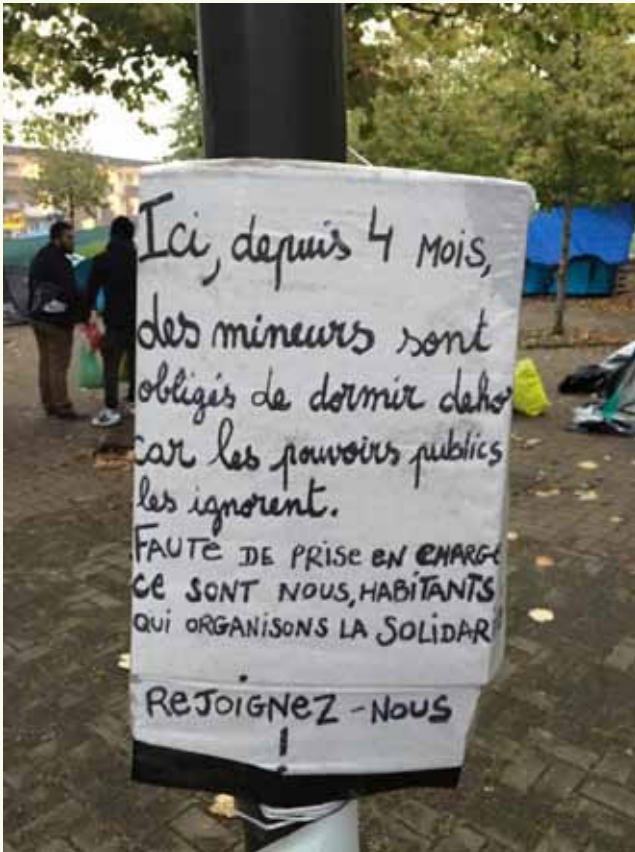 Ici, depuis 4 mois,
des mineurs sont
obligés de dormir deho
car les pouvoirs publics
les ignorent.
FAUTE DE PRISE EN CHARGE
CE SONT NOUS, HABITANTS
QUI ORGANISONS LA SOLIDARI
REJOIGNEZ-NOUS
!